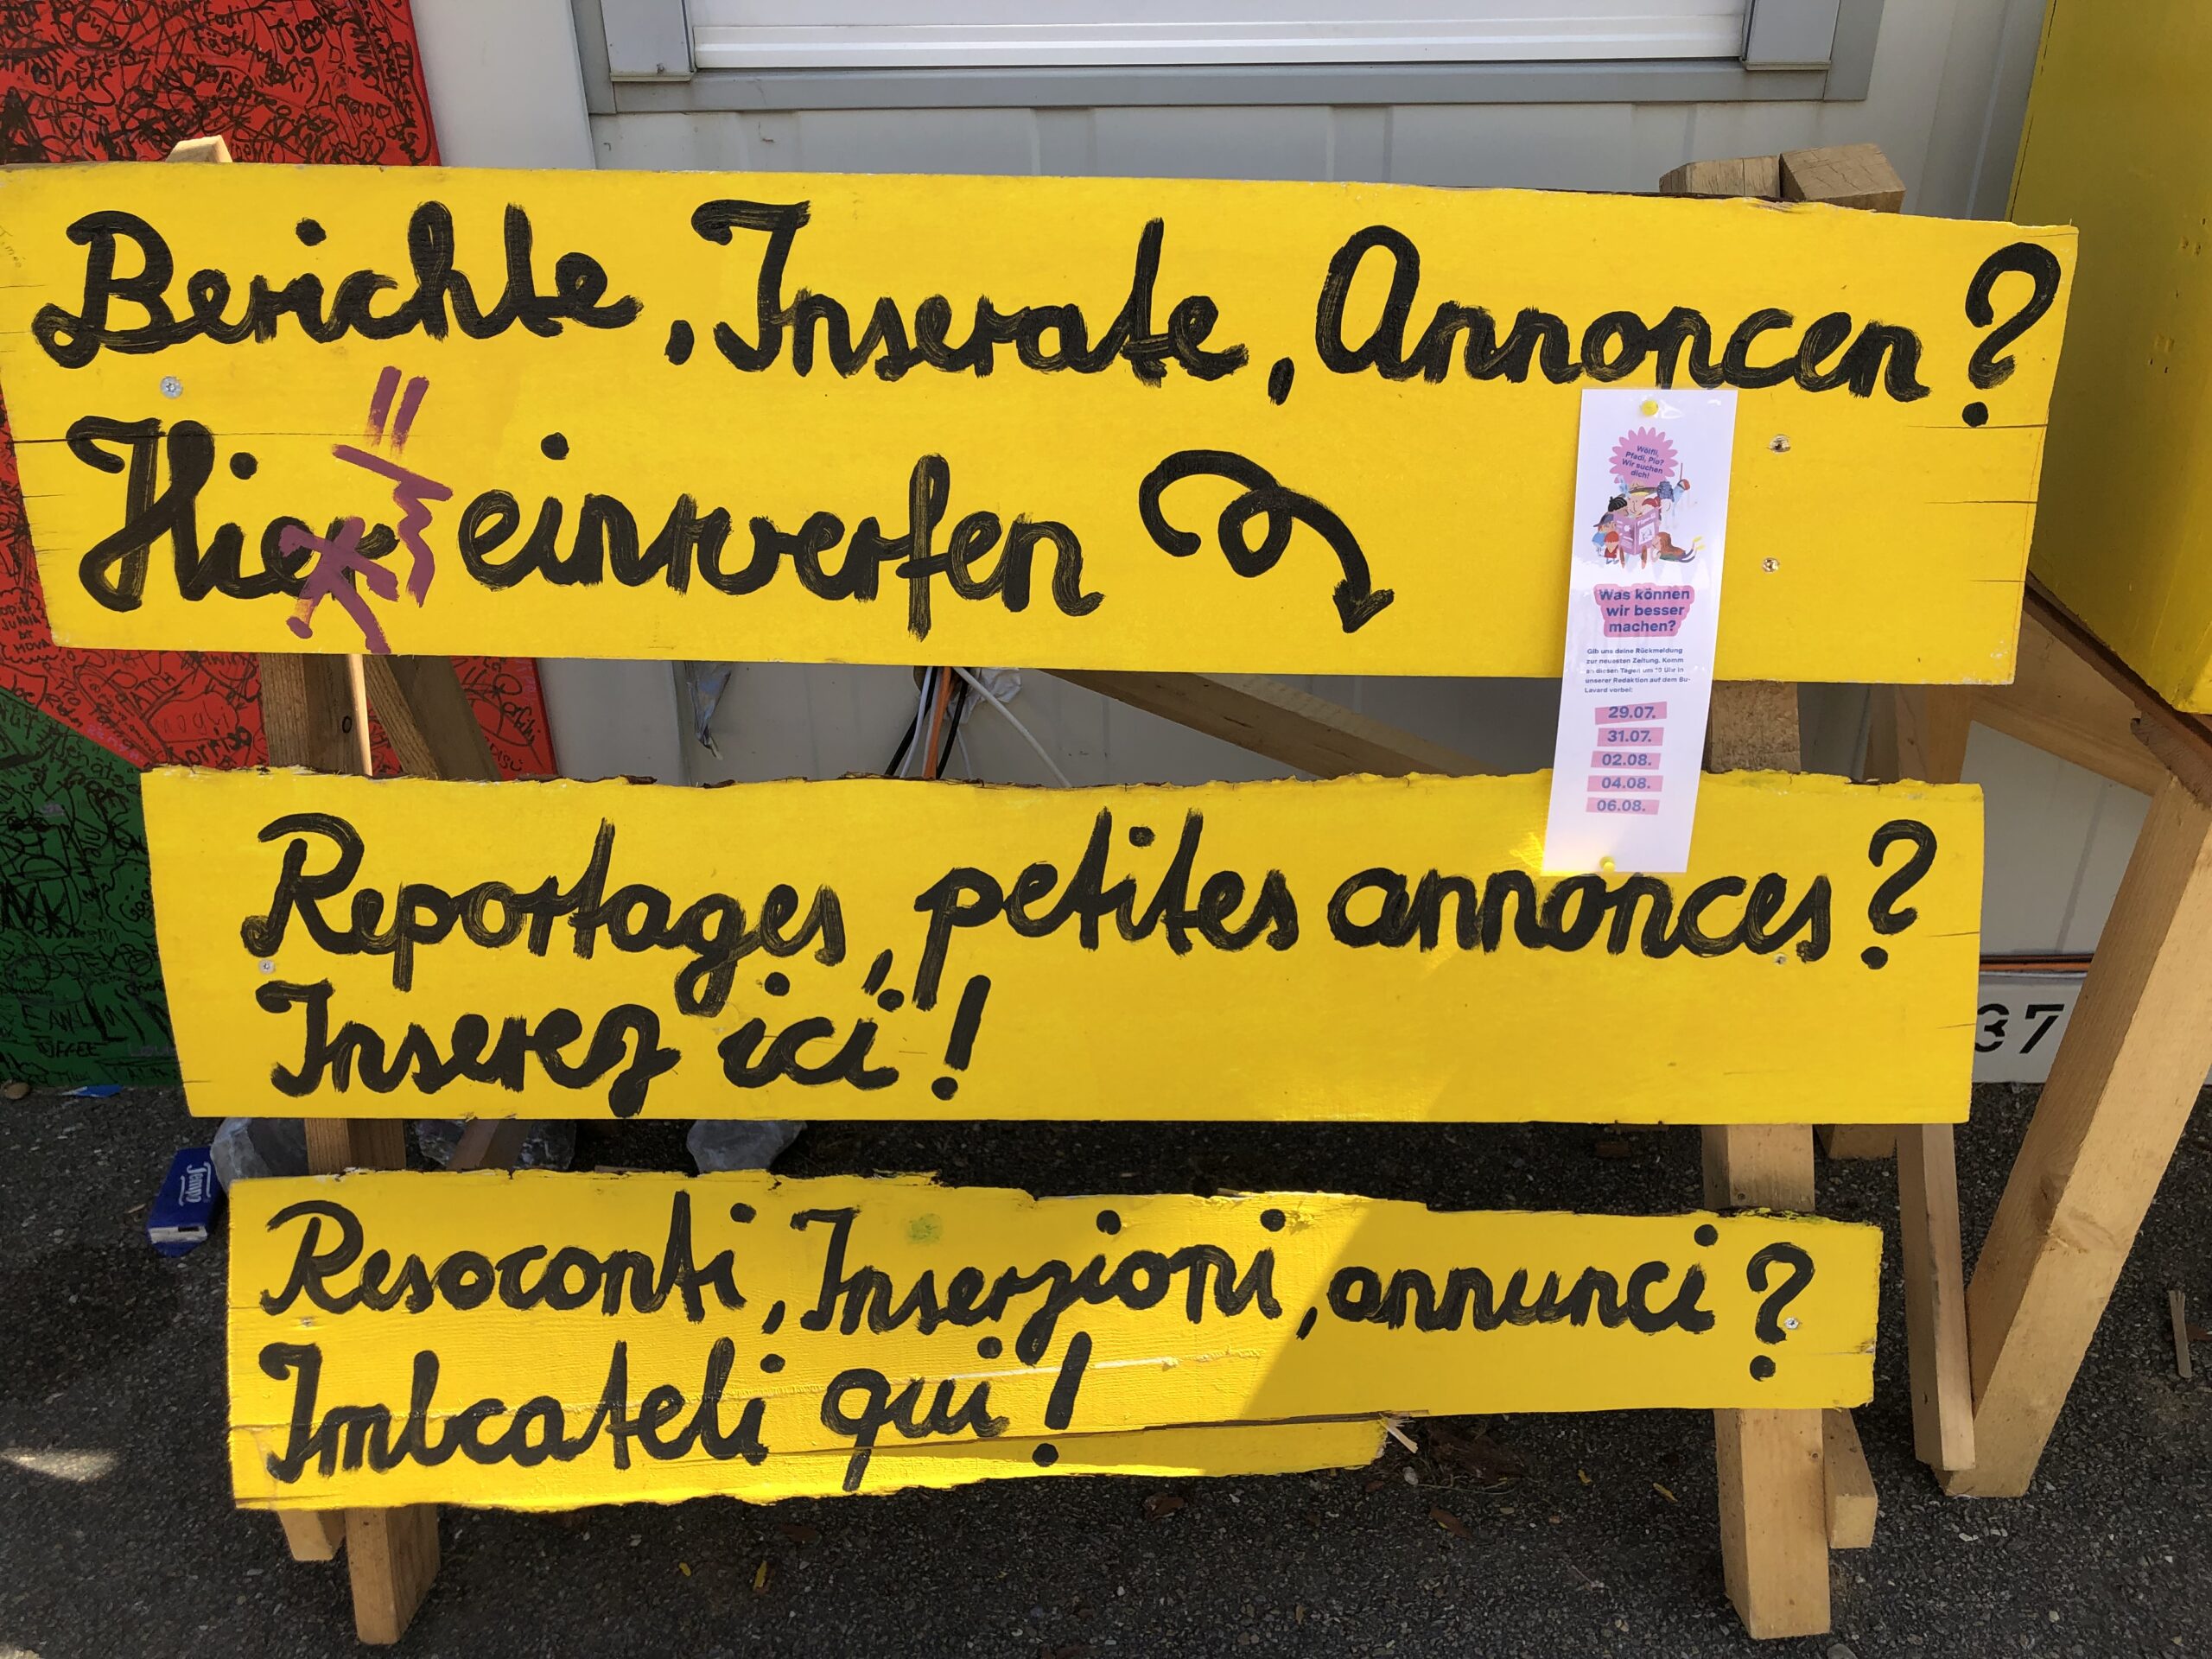 Berichte, Inserate, Annoncen?
Hier einwerfen
Wölfli,
Pfadi, Pio?
Wir suchen
dich!
Was können
wir besser
machen?
Gib uns deine Rückmeldung
zur neuesten Zeitung. Komm
an diesen Tagen um 10 Uhr in
unserer Redaktion auf dem Bu-
Lavard vorbei:
29.07.
31.07.
02.08.
04.08.
06.08.
Reportages, petites annonces?
Inserez ici!
37
Tempo
Resoconti, Inserzioni, annunci?
Imbcateli qui!